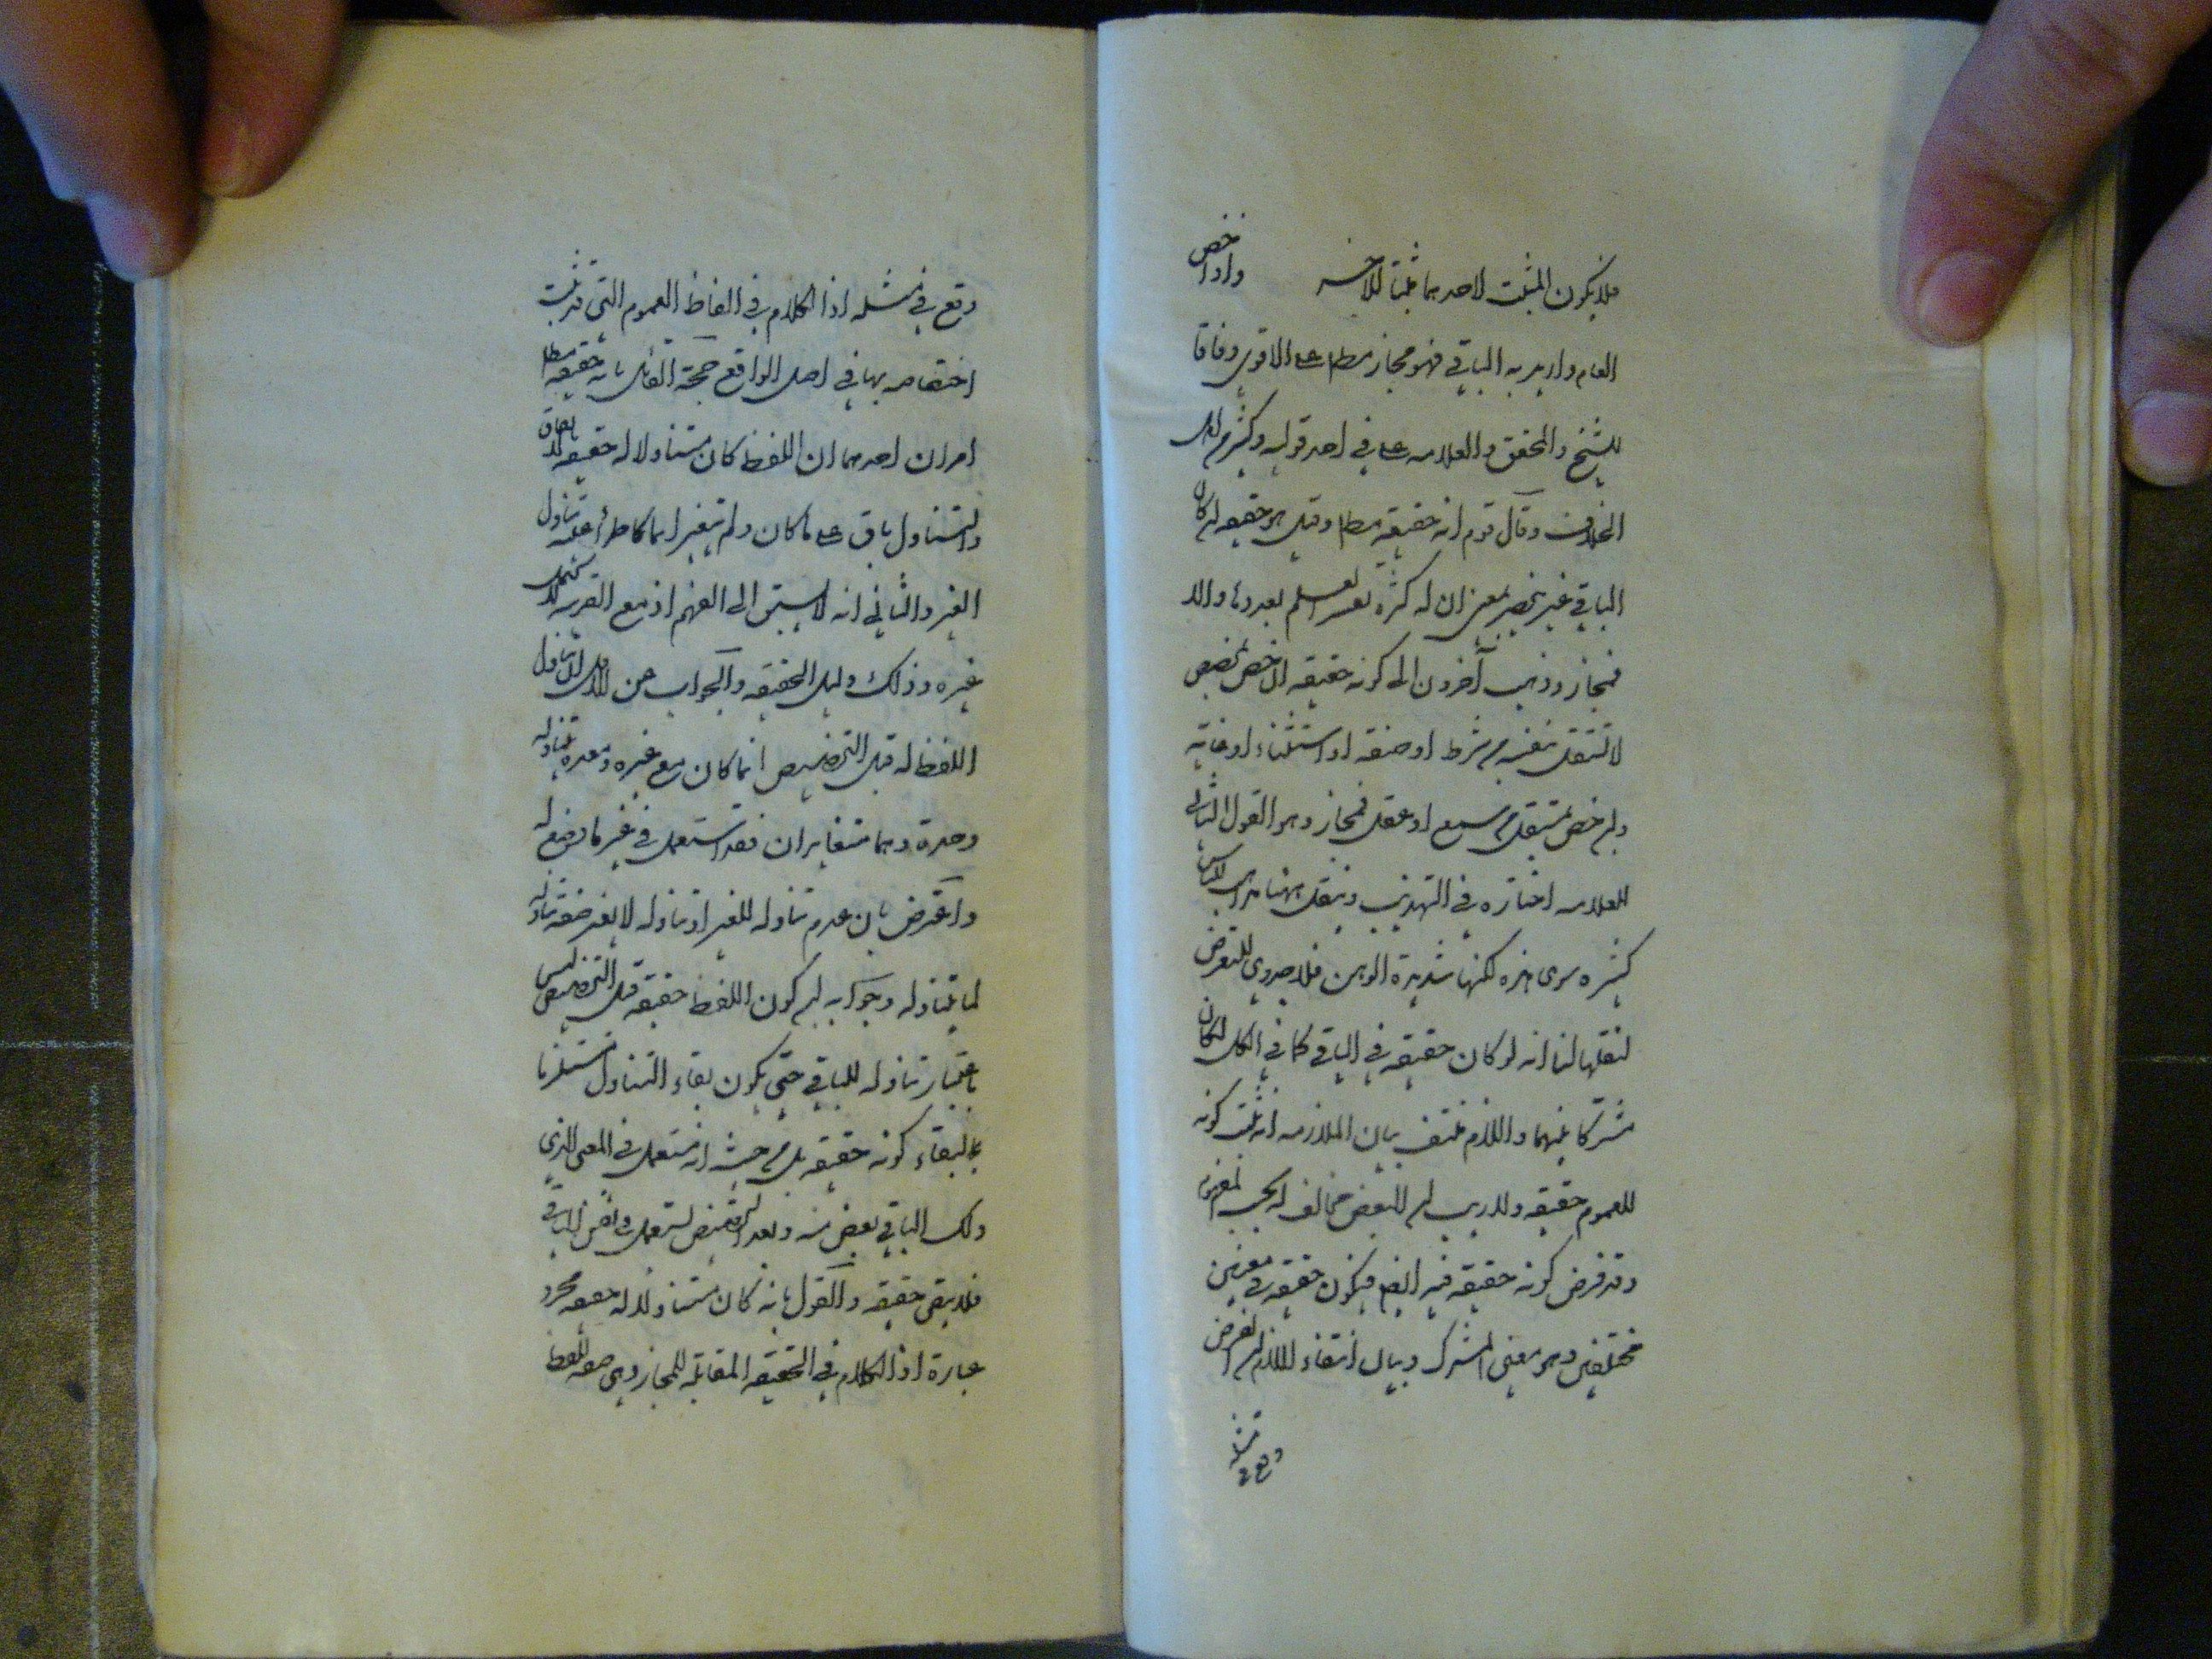 فلا يكون المثبت لاحدهما مثبتا للاخر واذا خص
العام واريد به الباقي فهو مجاز مطلقا على الاقوى وفاقا
للشيخ والمحقق والعلامه في احد قوليه وكثير من اهل
الخلاف وقال قوم انه حقيقة مطلقا وقيل هو حقيقه ان كان
الباقي غير منحصر بمعنى ان له كثرة يعسر العلم بعددها والا
فمجاز وذهب آخرون الى كونه حقيقة ان خص بمخصص
لا يستقل بنفسه من شرط او صفة او استثناء او غاية
وان خص بمستقل من سمع او عقل فمجاز وهو القول الثاني
للعلامه اختاره في التهذيب وينقل ههنا مذاهب للناس
كثيره سوى هذه لكنها شديدة الوهن فلا جدوى للتعرض
لنقلها لنا انه لو كان حقيقة في الباقي كما في الكل لكان
مشتركا بينهما واللازم منتف بيان الملازمه انه ثبت كونه
للعموم حقيقه ولا ريب ان البعض مخالف له بحسب المفهوم
وقد فرض كونه حقيقة فيه ايضا فيكون حقيقة في معنيين
مختلفين وهو معنى المشترك وبيان انتفاء اللازم ان الفرض
وقع في مثله
وقع في مثله اذ الكلام في الفاظ العموم التي قد ثبت
اختصاصه بها في اصل الواقع حجة القائل بانه حقيقة مطلقا
امران احدهما ان اللفظ كان متناولا له حقيقه بالاتفاق
والتناول باق على ما كان ولم يتغير انما طرأ عدم تناول
الغير والثاني انه يسبق الى الفهم اذ مع القرينه لا يحتمل
غيره وذلك دليل الحقيقه والجواب عن الاول ان تناول
اللفظ له قبل التخصيص انما كان مع غيره وبعده يتناوله
وحده وهما متغايران فقد استعمل في غير ما وضع له
واعترض بان عدم تناوله للغير او تناوله لا يغير صفة تناوله
لما يتناوله وجوابه ان كون اللفظ حقيقة قبل التخصيص ليس
باعتبار تناوله للباقي حتى يكون بقاء التناول مستلزما
لبقاء كونه حقيقة بل من حيث انه مستعمل في المعنى الذي
ذلك الباقي بعض منه وبعد التخصيص يستعمل في نفس الباقي
فلا يبقى حقيقه والقول بانه كان متناولا له حقيقه مجرد
عبارة اذ الكلام في الحقيقة المقابلة للمجاز وهي صفه اللفظ